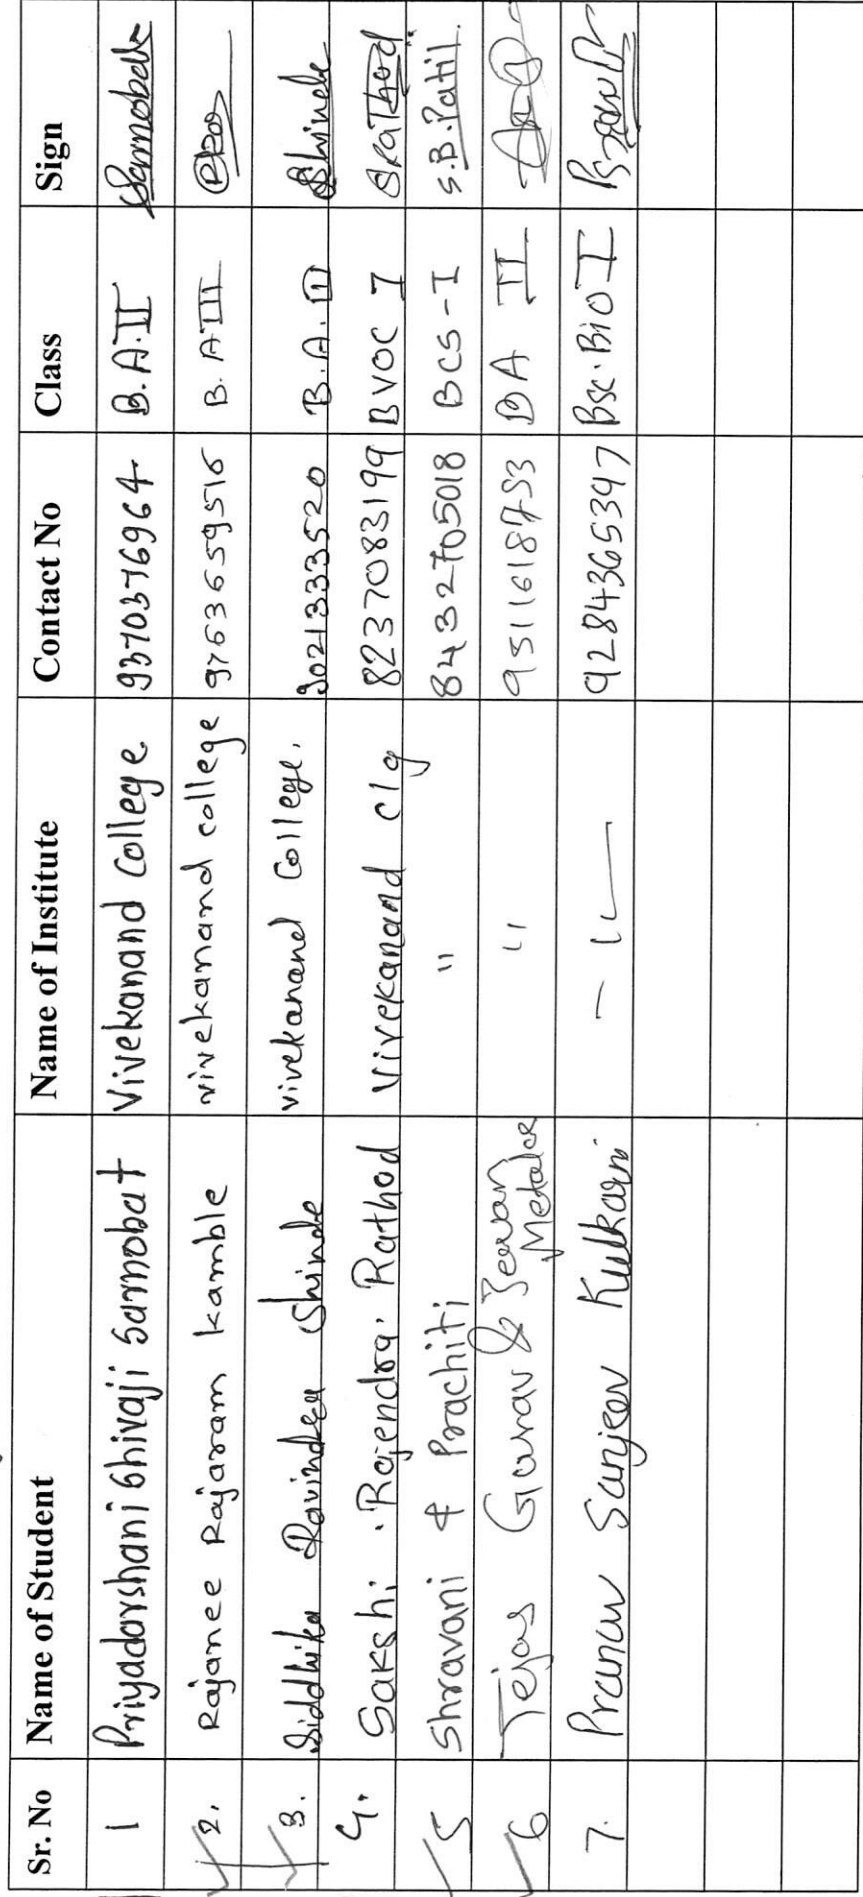 Sr. No Name of Student Name of Institute Contact No Class Sign
1 Priyadarshani Shivaji Sarnobat Vivekanand College 9370376964 B.A.II Sarnobat
2. Rajanee Rajaram kamble vivekanand college 9763659516 B.A III
3. Siddhika Ravindra Shinde vivekanand College. 9021333520 B.A. III Shinde
4. Sakshi . Rajendra. Rathod Vivekanand clg 8237083199 BVOC I SRathod
5 Shravani & Prachiti " 8432705018 BCS-I S.B.Patil.
6 Tejas Gurav & Jeevan Metake " 9511618753 BA II
7. Pranav Sanjeev Kulkarni - 11 - 9284365397 Bsc.Bio I